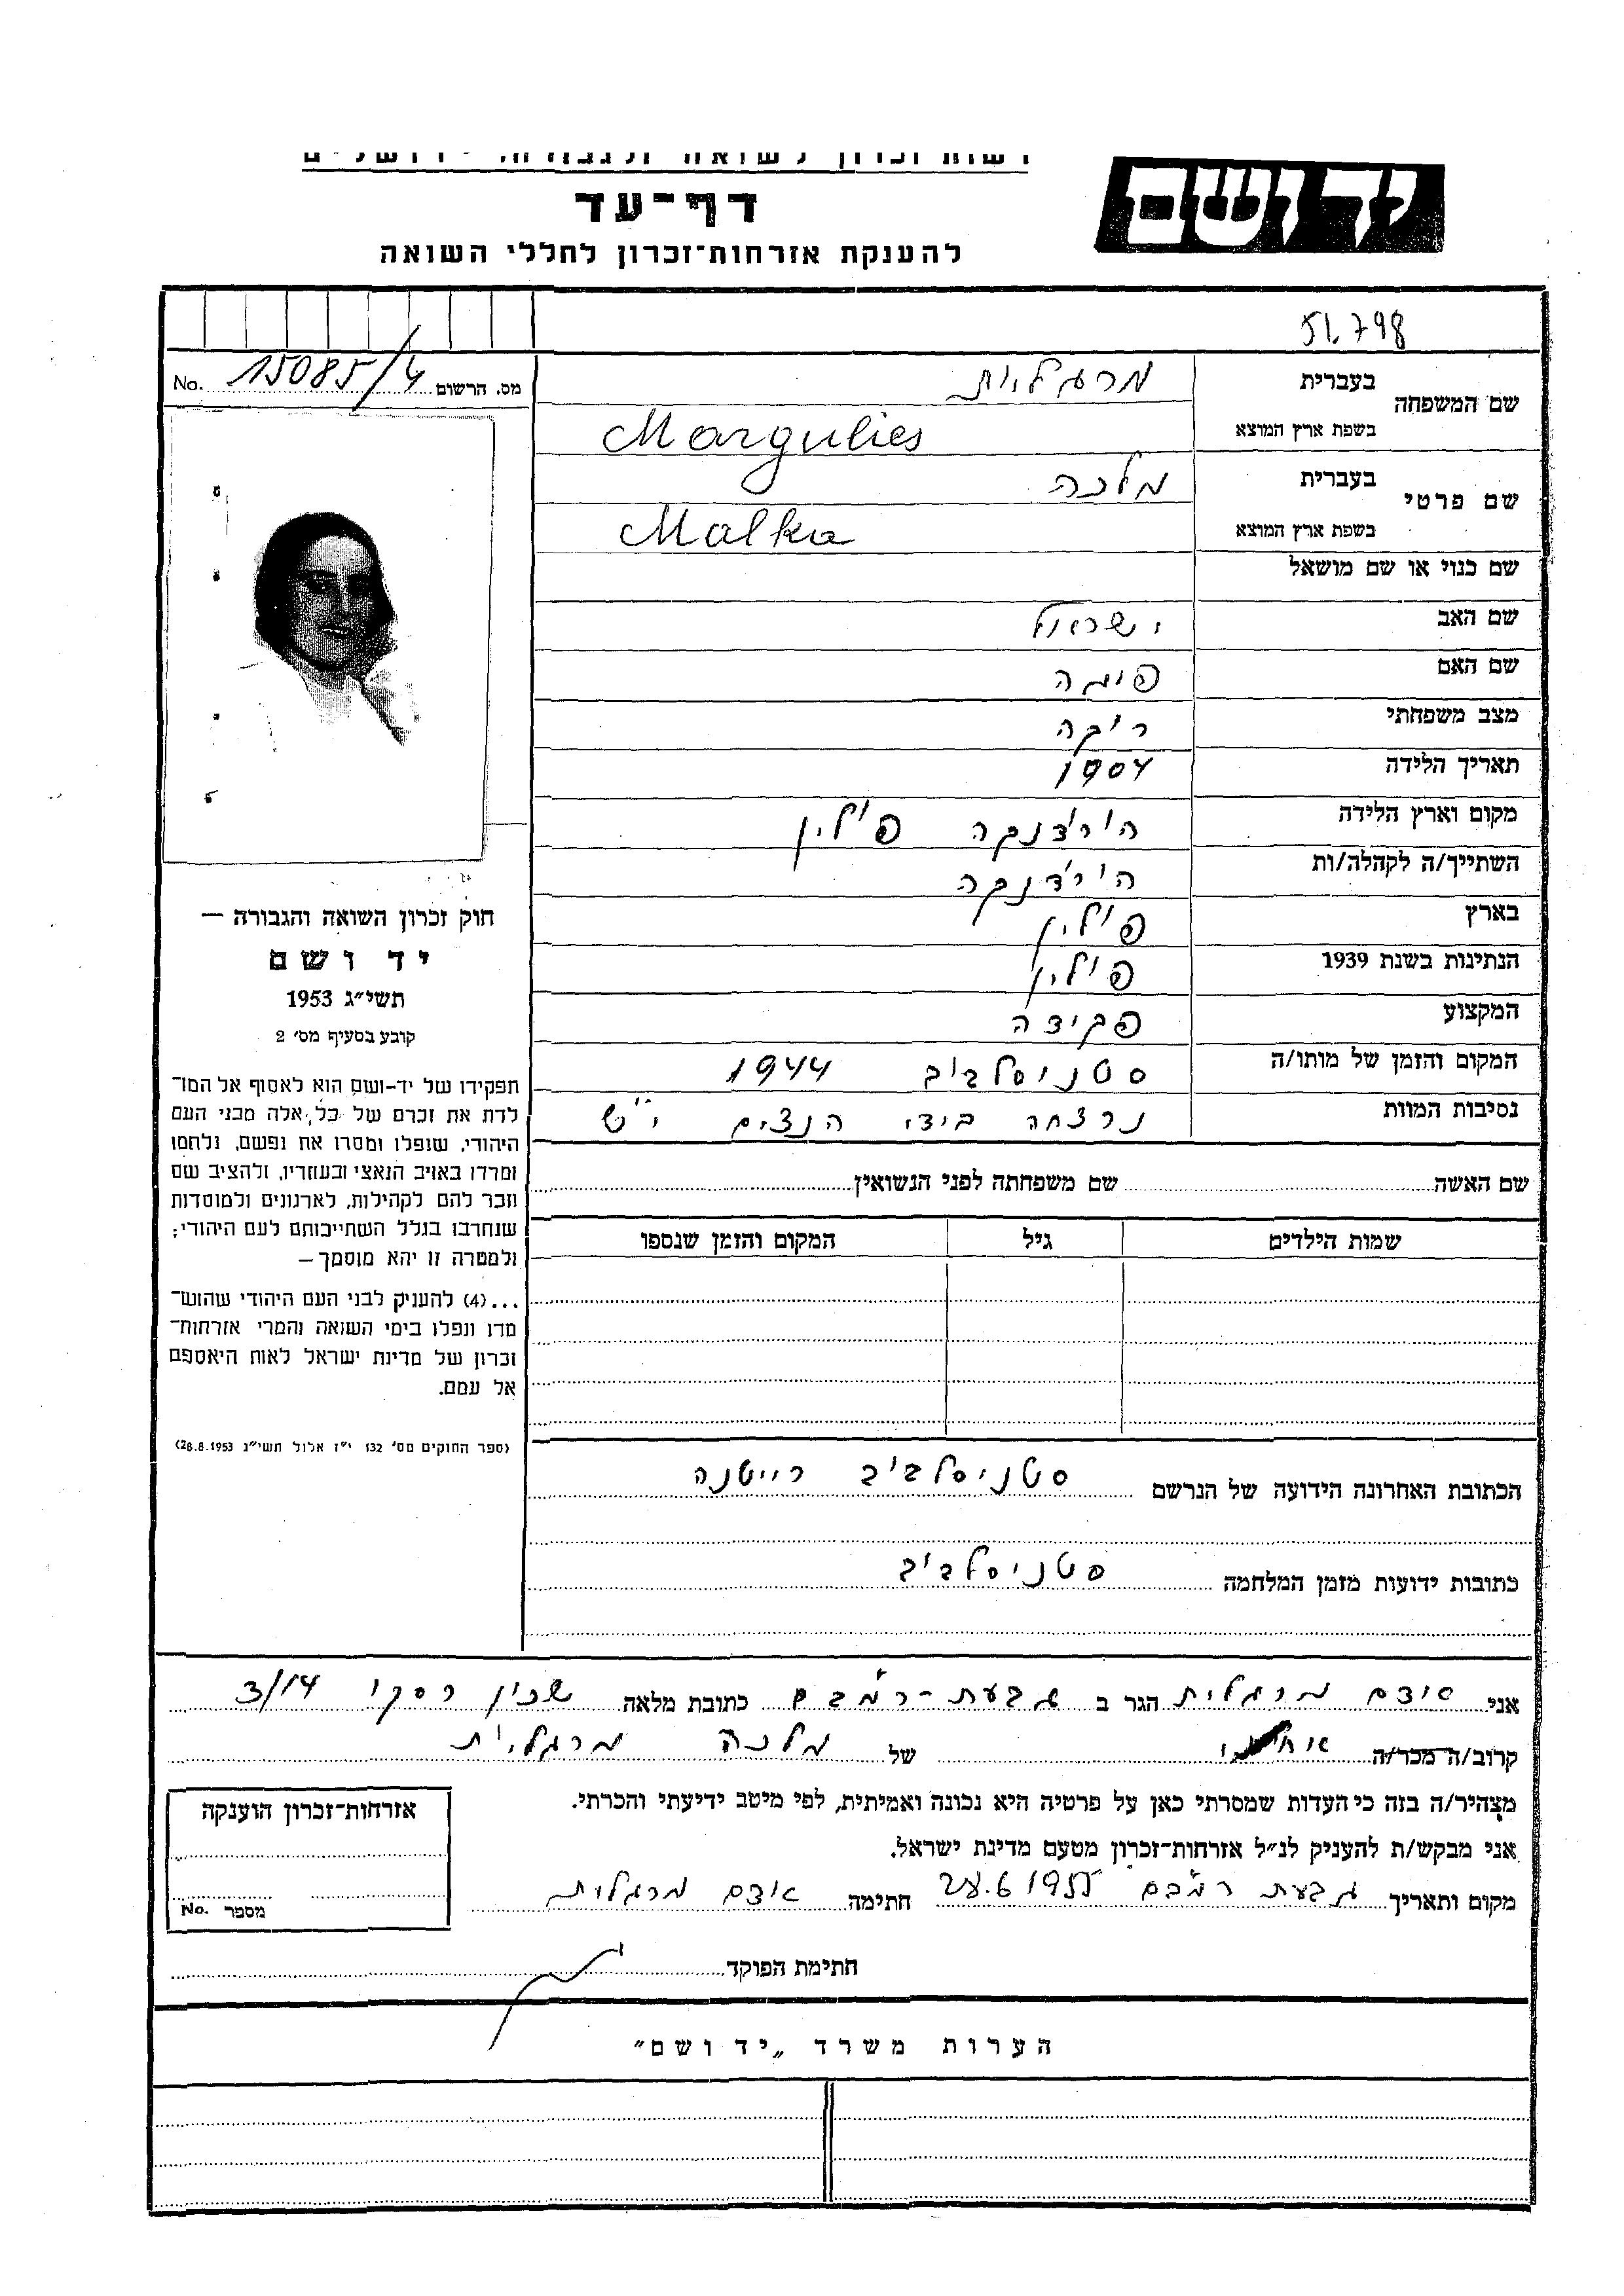 יד ושם
דף־עד
להענקת אזרחות־זכרון לחללי השואה
51.798
מס. הרשום 15085/4 No.
שם המשפחה
בעברית מרגליות
בשפת ארץ המוצא Margulies
שם פרטי
בעברית מלכה
בשפת ארץ המוצא Malka
שם כנוי או שם מושאל
שם האב ישראל
שם האם
מצב משפחתי
תאריך הלידה 1904
מקום וארץ הלידה הורודנקה פולין
השתייך/ה לקהלה/ות הורודנקה
בארץ פולין
הנתינות בשנת 1939 פולין
המקצוע פקידה
המקום והזמן של מותו/ה סטניסלבוב 1944
נסיבות המוות נרצחה בידי הנצים י"ש
שם האשה שם משפחתה לפני הנשואין
שמות הילדים גיל המקום והזמן שנספו
הכתובת האחרונה הידועה של הנרשם סטניסלבוב
כתובות ידועות מזמן המלחמה סטניסלבוב
חוק זכרון השואה והגבורה —
יד ושם
תשי"ג 1953
קובע בסעיף מס' 2
תפקידו של יד-ושם הוא לאסוף אל המו־
לדת את זכרם של כל אלה מבני העם
היהודי, שנפלו ומסרו את נפשם, נלחמו
ומרדו באויב הנאצי ובעוזריו, ולהציב שם
וזכר להם לקהילות, לארגונים ולמוסדות
שנחרבו בגלל השתייכותם לעם היהודי;
ולמטרה זו יהא מוסמך —
...(4) להעניק לבני העם היהודי שהוש־
מדו ונפלו בימי השואה והמרי אזרחות־
זכרון של מדינת ישראל לאות היאספם
אל עמם.
(ספר החוקים מס' 132 י"ז אלול תשי"ג 28.8.1953)
אני מרגלית הגר ב גבעת-רמב"ם כתובת מלאה שכון רסקו 3/14
קרוב/ה מכר/ה של מלכה מרגליות
מצהיר/ה בזה כי העדות שמסרתי כאן על פרטיה היא נכונה ואמיתית, לפי מיטב ידיעתי והכרתי.
אני מבקש/ת להעניק לנ"ל אזרחות־זכרון מטעם מדינת ישראל.
מקום ותאריך גבעת רמב"ם חתימה מרגלית
חתימת הפוקד
אזרחות־זכרון הוענקה
מספר No.
הערות משרד „יד ושם"